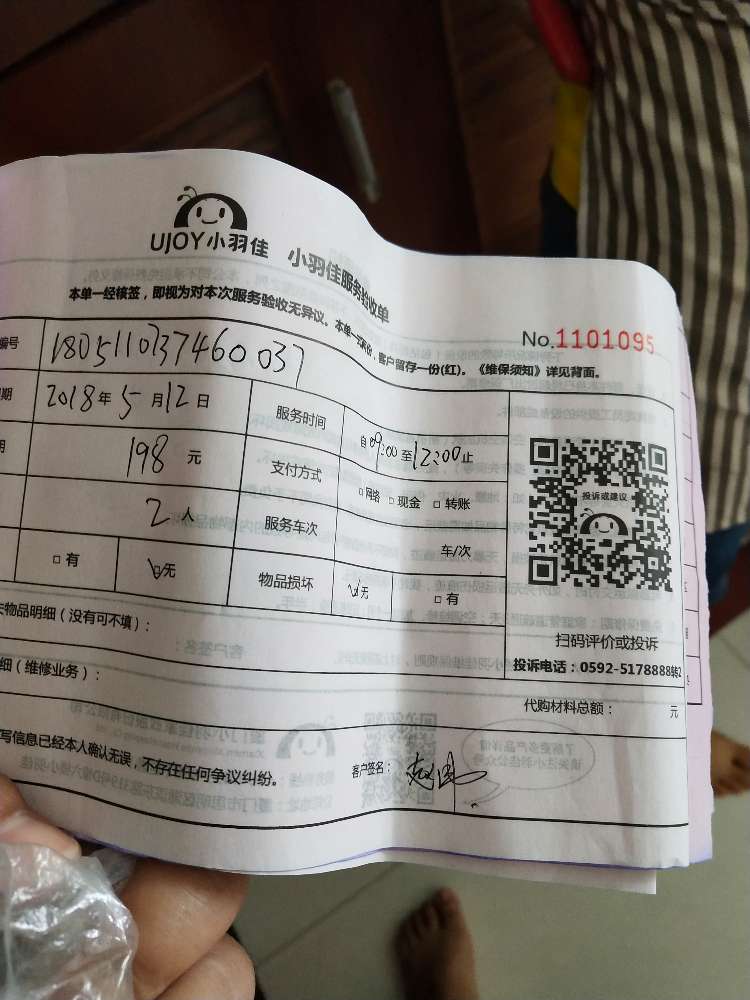 UJOY小羽佳 小羽佳服务验收单
本单一经核签，即视为对本次服务验收无异议。本单一式两份，客户留存一份(红)。《维保须知》详见背面。
No.1101095
编号 1805110737460037
期 2018年5月12日 服务时间 自09:00至12:00止
用 198元 支付方式 □网络 □现金 □转账
2人 服务车次 车/次
□有 □无 物品损坏 □无 □有
失物品明细（没有可不填）：
投诉或建议
扫码评价或投诉
投诉电话：0592-5178888转2
细（维修业务）：
代购材料总额： 元
写信息已经本人确认无误，不存在任何争议纠纷。
客户签名：